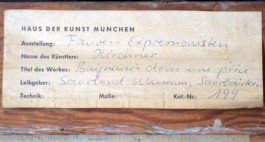 HAUS DER KUNST MÜNCHEN
Ausstellung: Fauves - Expressionisten
Name des Künstlers: Kirchner
Titel des Werkes:
Leihgeber: Saarland-Museum, Saarbrücken
Technik: Maße: Kat.-Nr.: 199